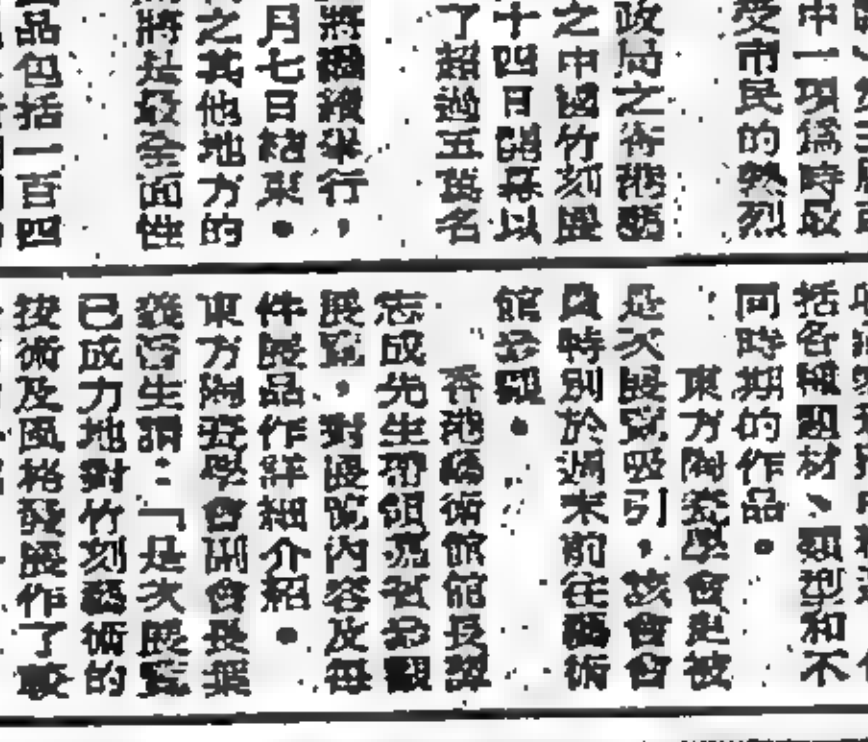 受市民的熱烈
政局之香港藝
之中國竹刻展
十四日開幕以
了超過五萬名
將繼續舉行，
月七日結束。
之其他地方的
將是最全面性
品包括一百四
括各種題材、類型和不
同時期的作品。
東方陶瓷學會是被
是次展覽吸引，該會會
員特別於週末前往藝術
館參觀。
香港藝術館館長譚
志成先生帶領
展覽，對展覽內容及每
件展品作詳細介紹。
東方陶瓷學會副會長葉
義醫生謂：「是次展覽
已成力地對竹刻藝術的
技術及風格發展作了較